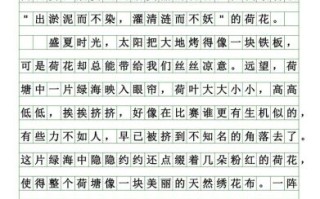 “出淤泥而不染，濯清涟而不妖”的荷花。
盛夏时光，太阳把大地烤得像一块铁板，
可是荷花却总能带给我们丝丝凉意。远望，荷
塘中一片绿海映入眼帘，荷叶大大小小，高高
低低，挨挨挤挤，好像在比赛谁更有生机似的，
有些力不如人，早已被挤到不知名的角落去了。
这片绿海中隐隐约约还点缀着几朵粉红的荷花，
使得整个荷塘像一块美丽的天然绣花布。一阵